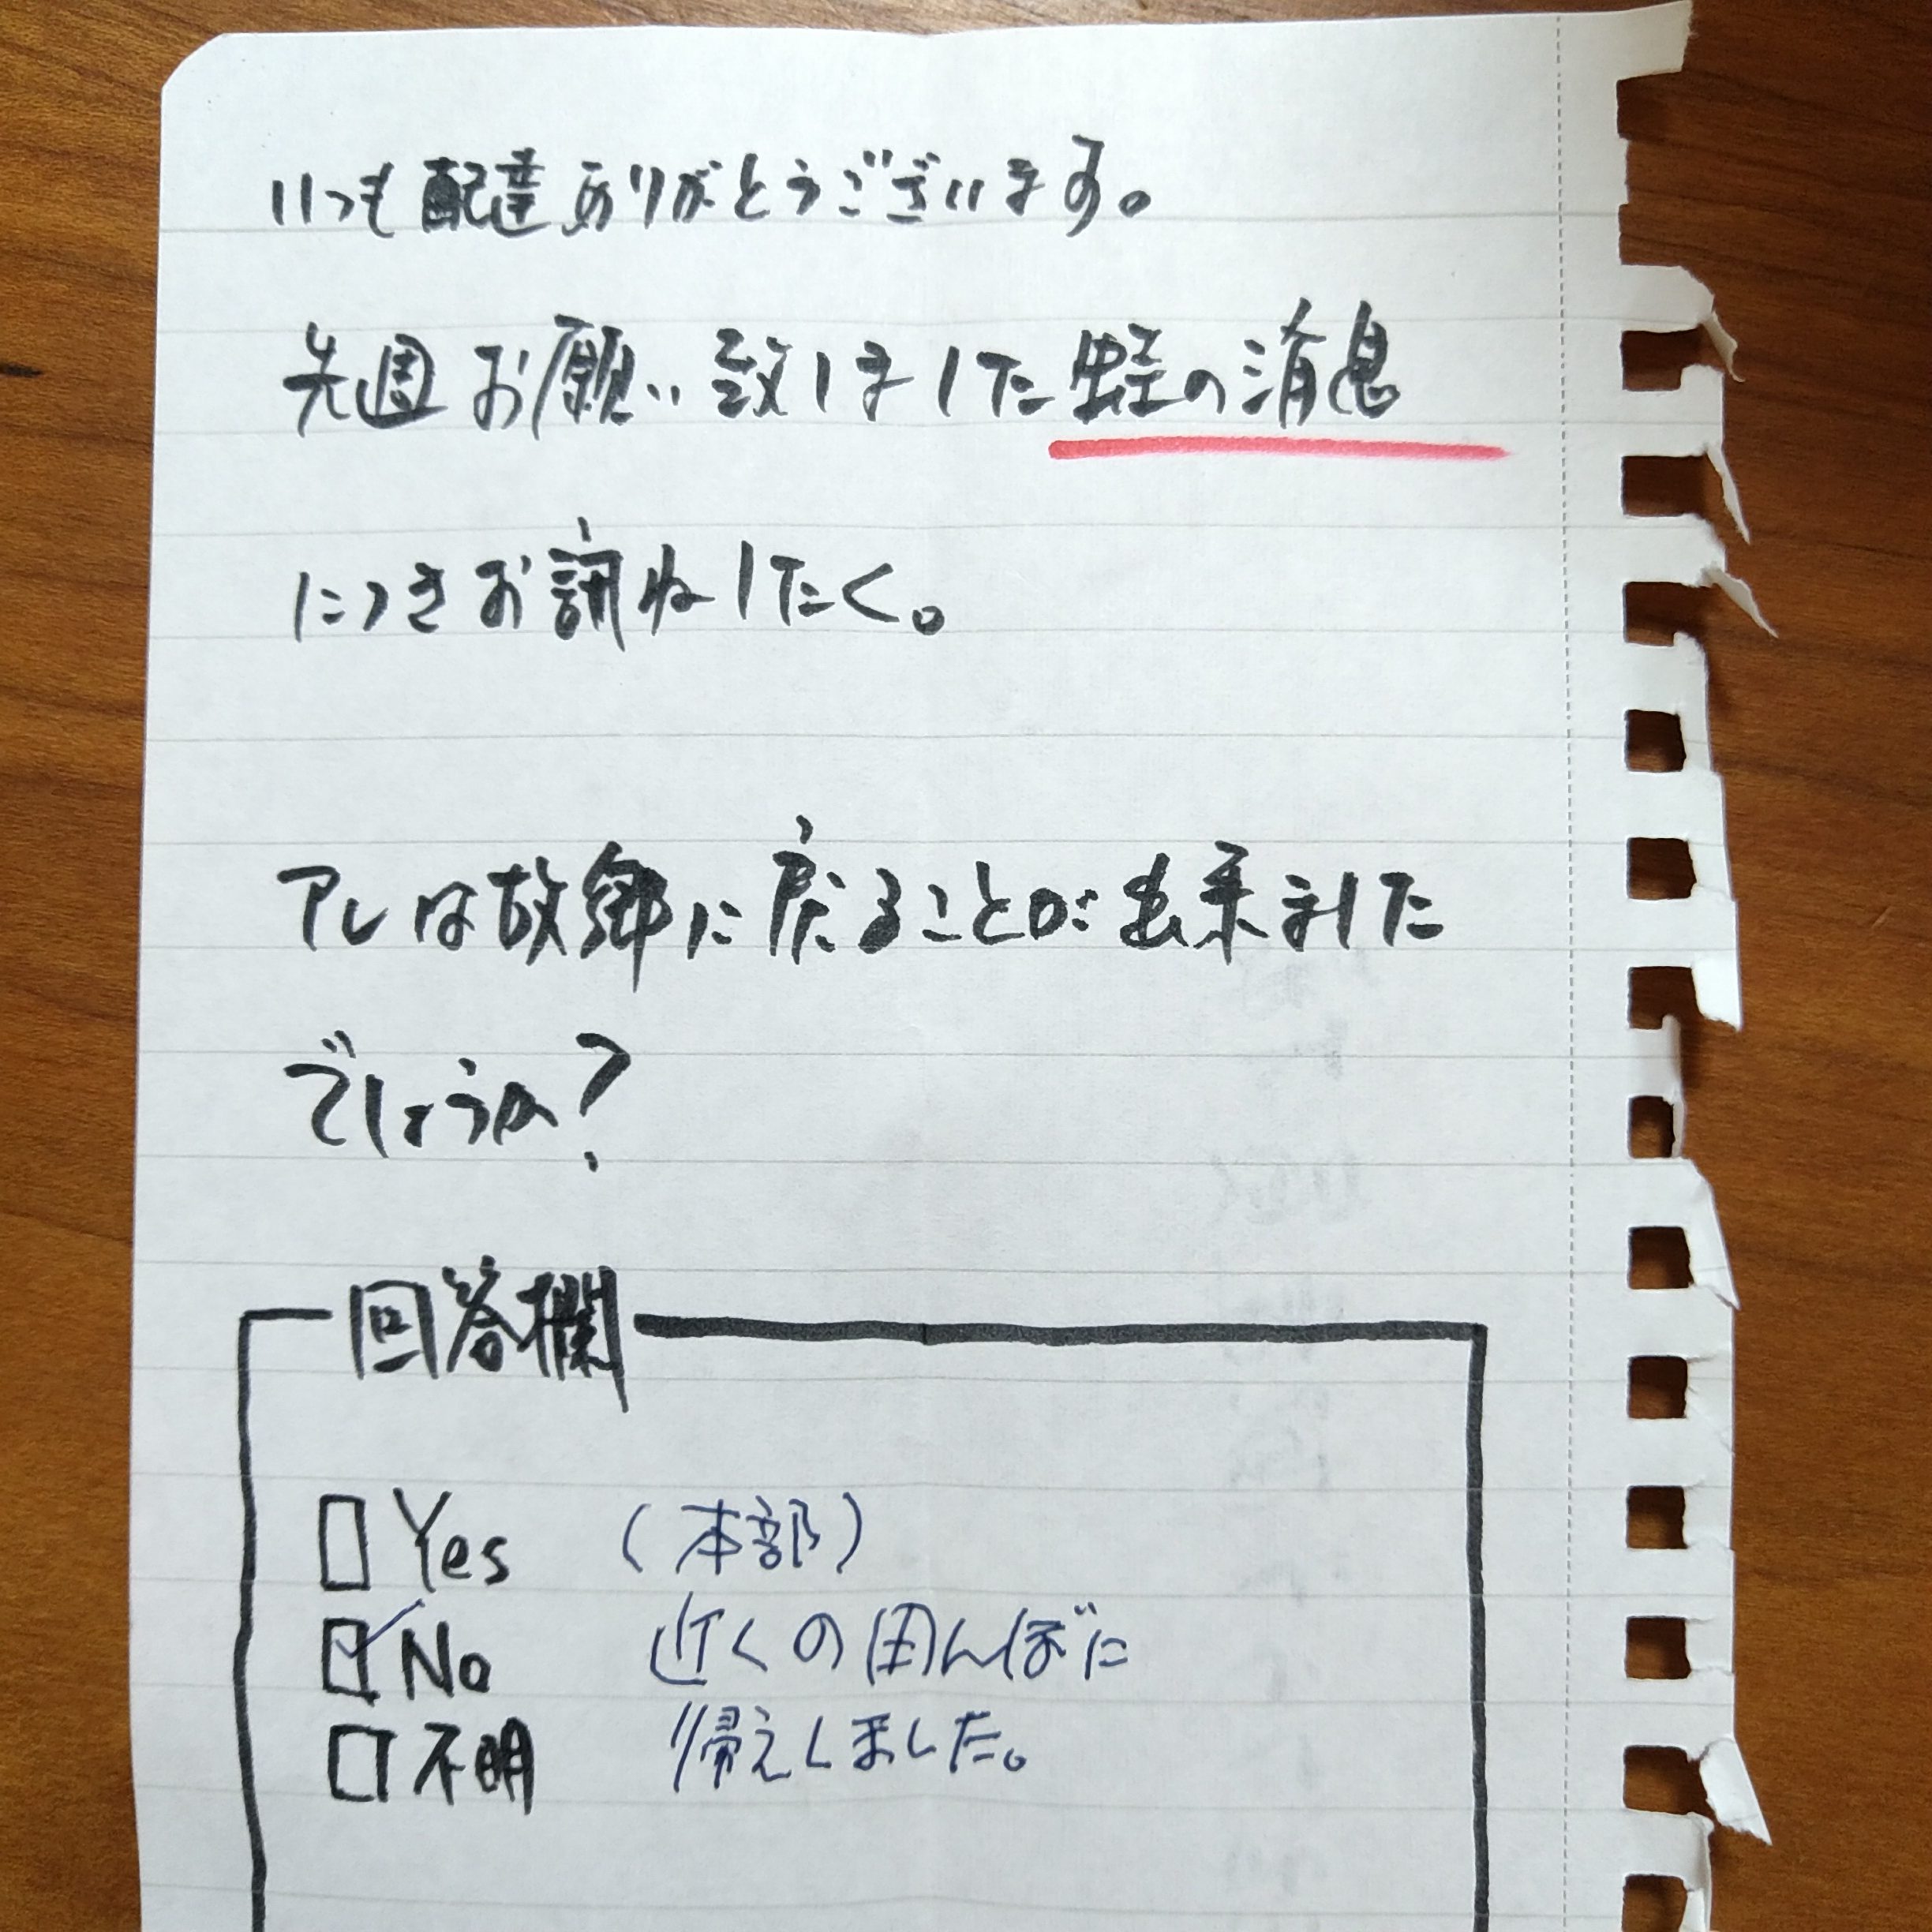 いつも配達ありがとうございます。
先週お願い致しました蛙の消息
につきお訊ねしたく。
アレは故郷に戻ることが出来ました
でしょうか?
回答欄
□ Yes (本部)
☑ No 近くの田んぼに
□ 不明 帰えしました。